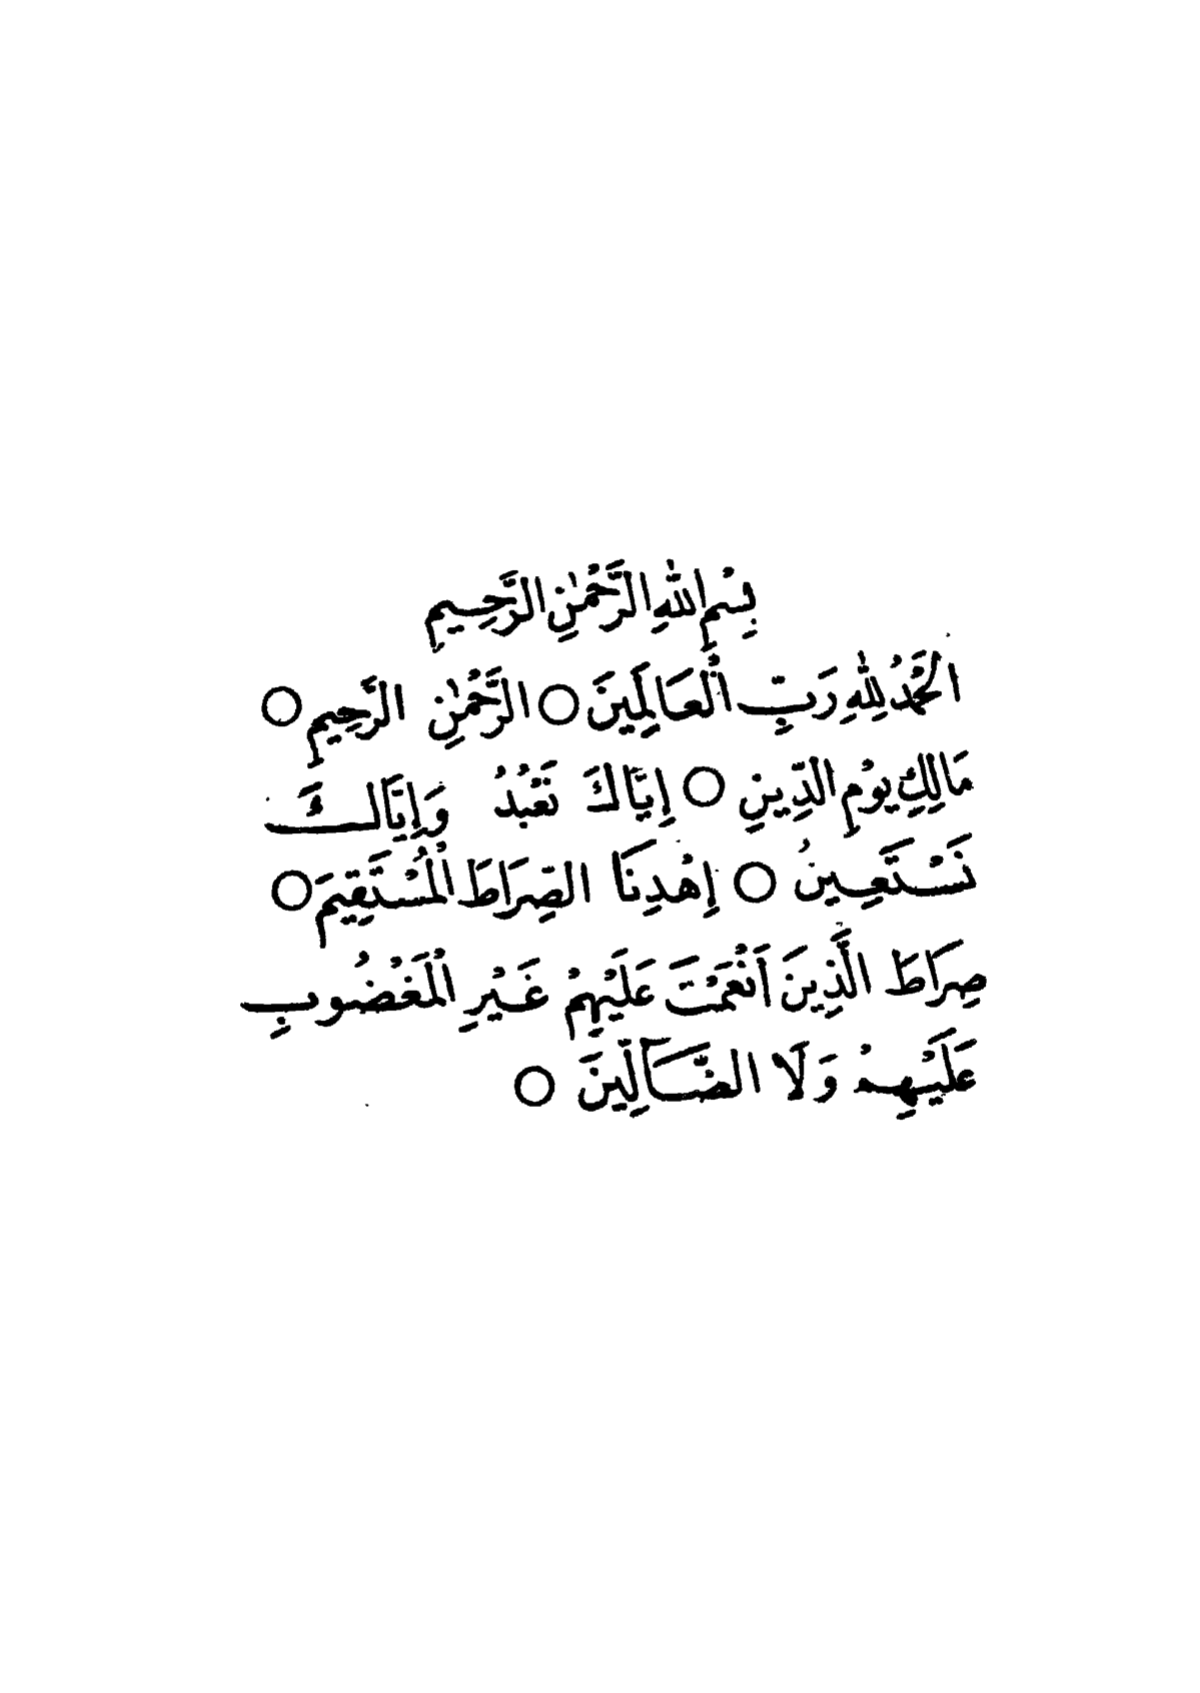 بِسْمِ اللّٰهِ الرَّحْمٰنِ الرَّحِيمِ
الْحَمْدُ لِلّٰهِ رَبِّ الْعَالَمِينَ ○ الرَّحْمٰنِ الرَّحِيمِ ○
مَالِكِ يَوْمِ الدِّينِ ○ إِيَّاكَ نَعْبُدُ وَإِيَّاكَ
نَسْتَعِينُ ○ إِهْدِنَا الصِّرَاطَ الْمُسْتَقِيمَ ○
صِرَاطَ الَّذِينَ اَنْعَمْتَ عَلَيْهِمْ غَيْرِ الْمَغْضُوبِ
عَلَيْهِمْ وَلَا الضَّآلِّينَ ○